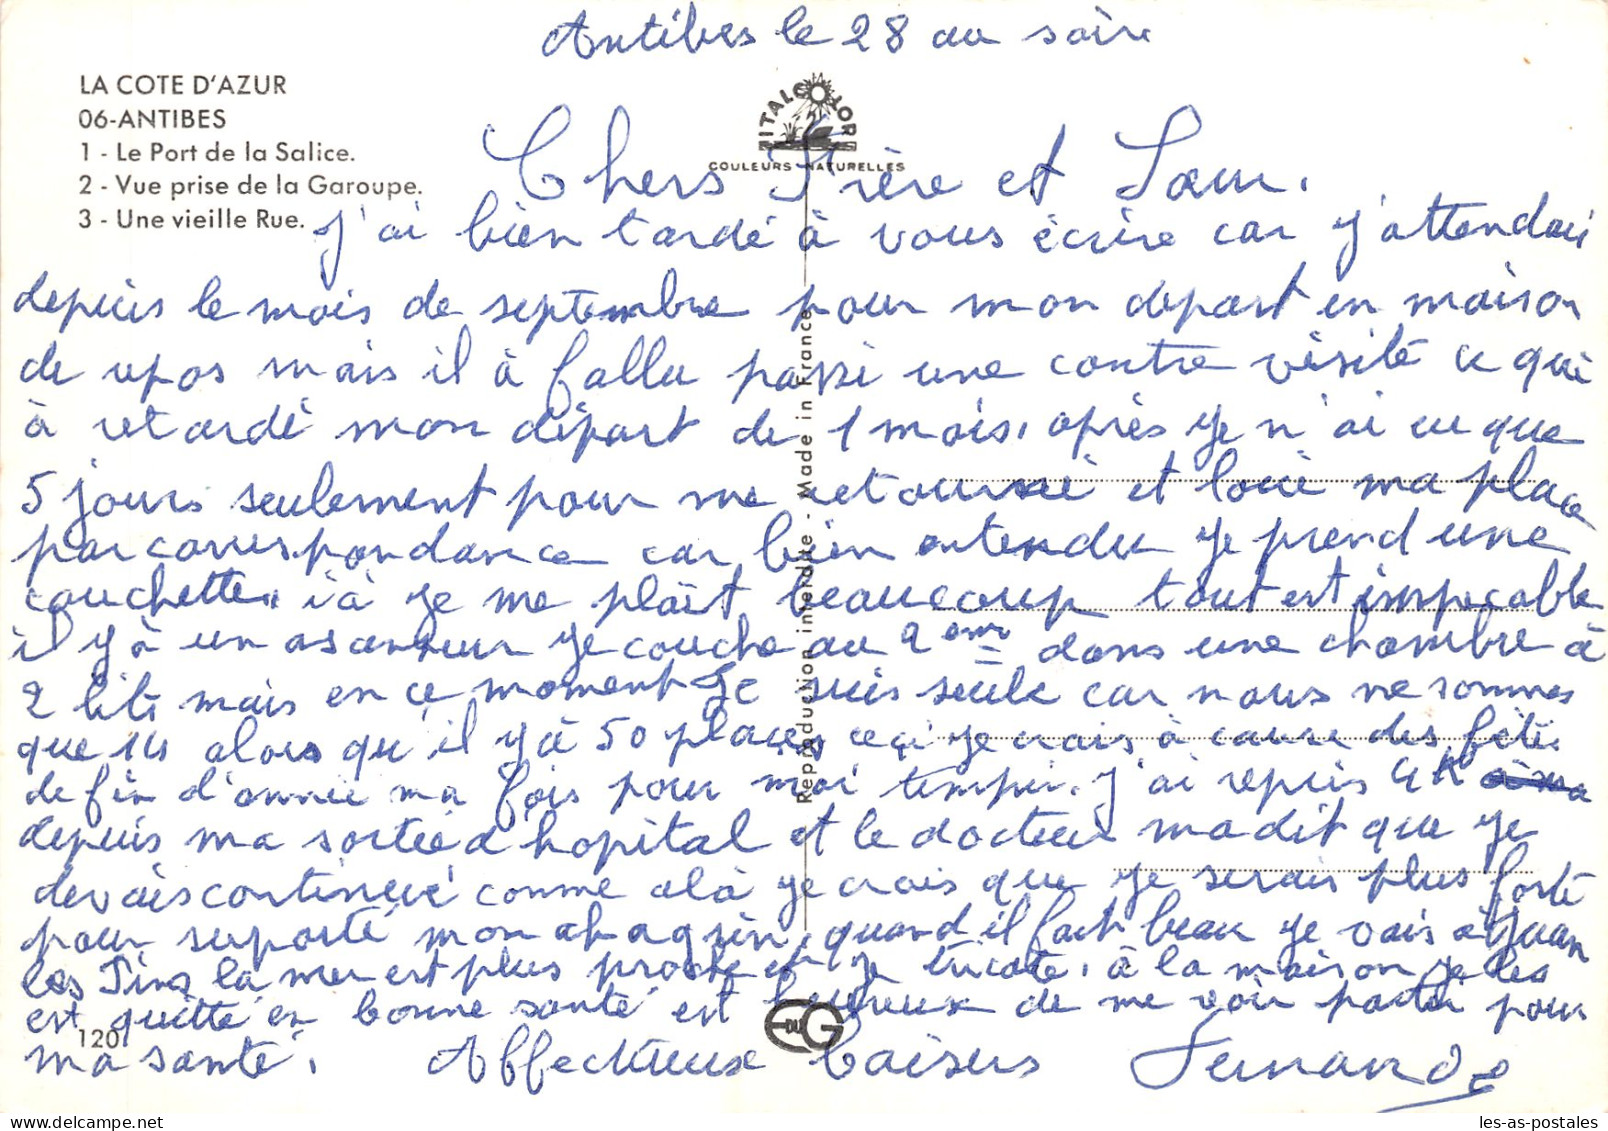 Antibes le 28 au soire
LA COTE D'AZUR
06-ANTIBES
1 - Le Port de la Salice.
2 - Vue prise de la Garoupe.
3 - Une vieille Rue.
ITALCOLOR
COULEURS NATURELLES
Chers Frère et Sœur.
j'ai bien tardé à vous écrire car j'attendais
depuis le mois de septembre pour mon depart en maison
de repos mais il à fallu passé une contre visité ce qui
à retardé mon départ de 1 mois, après je n'ai eu que
5 jours seulement pour me retourné et loué ma place
par correspondance car bien entendu je prend une
couchette, ici je me plaît beaucoup tout est impecable
il y à un ascenseur je couche au 2 eme dans une chambre à
2 lits mais en ce moment je suis seule car nous ne sommes
que 14 alors qu'il y à 50 places ceçi je crois à cause des fêtes
de fin d'année ma fois pour moi tempis. J'ai repris 4 K
depuis ma sortie d hopital et le docteur ma dit que je
devais continué comme çà je crois que je serais plus forte
pour supporté mon chagrin, quand il fait beau je vais à Juan
les Pins la mer est plus proche et je tricote, à la maison je les
est quitté en bonne santé est heureux de me voir partir pour
ma santé. Affectueux baisers Fernande
120
E DU G
Reproduction interdite - Made in France
les-as-postales